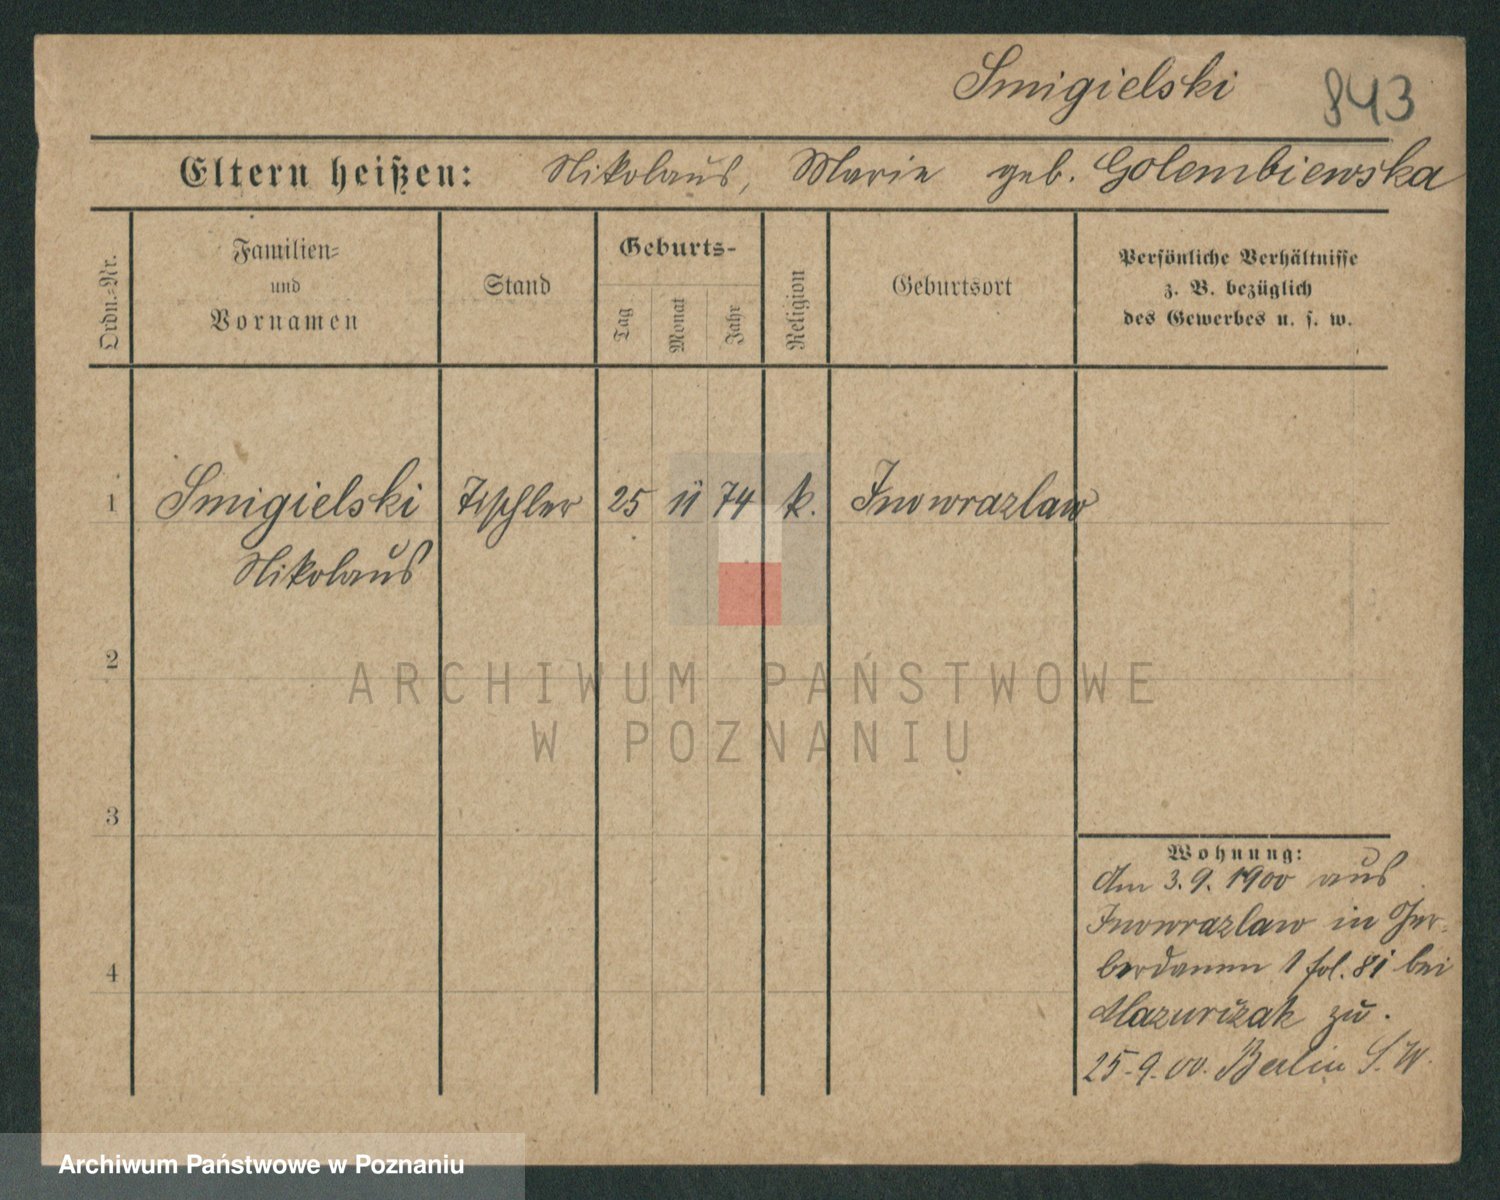 Smigielski 843
Eltern heißen: Nikolaus, Marie geb. Golembiewska
Ordn.-Nr.
Familien-
und
Vornamen
Stand
Geburts-
Tag
Monat
Jahr
Religion
Geburtsort
Persönliche Verhältnisse
z. B. bezüglich
des Gewerbes u. s. w.
1 Smigielski Tischler 25 11 74 k. Inowrazlaw
Nikolaus
2
3
4
Wohnung:
Am 3.9.1900 aus
Inowrazlaw in Ger-
berdamm 1 fol. 81 bei
zu.
25.9.00. Berlin S.W.
ARCHIWUM PAŃSTWOWE
W POZNANIU
Archiwum Państwowe w Poznaniu